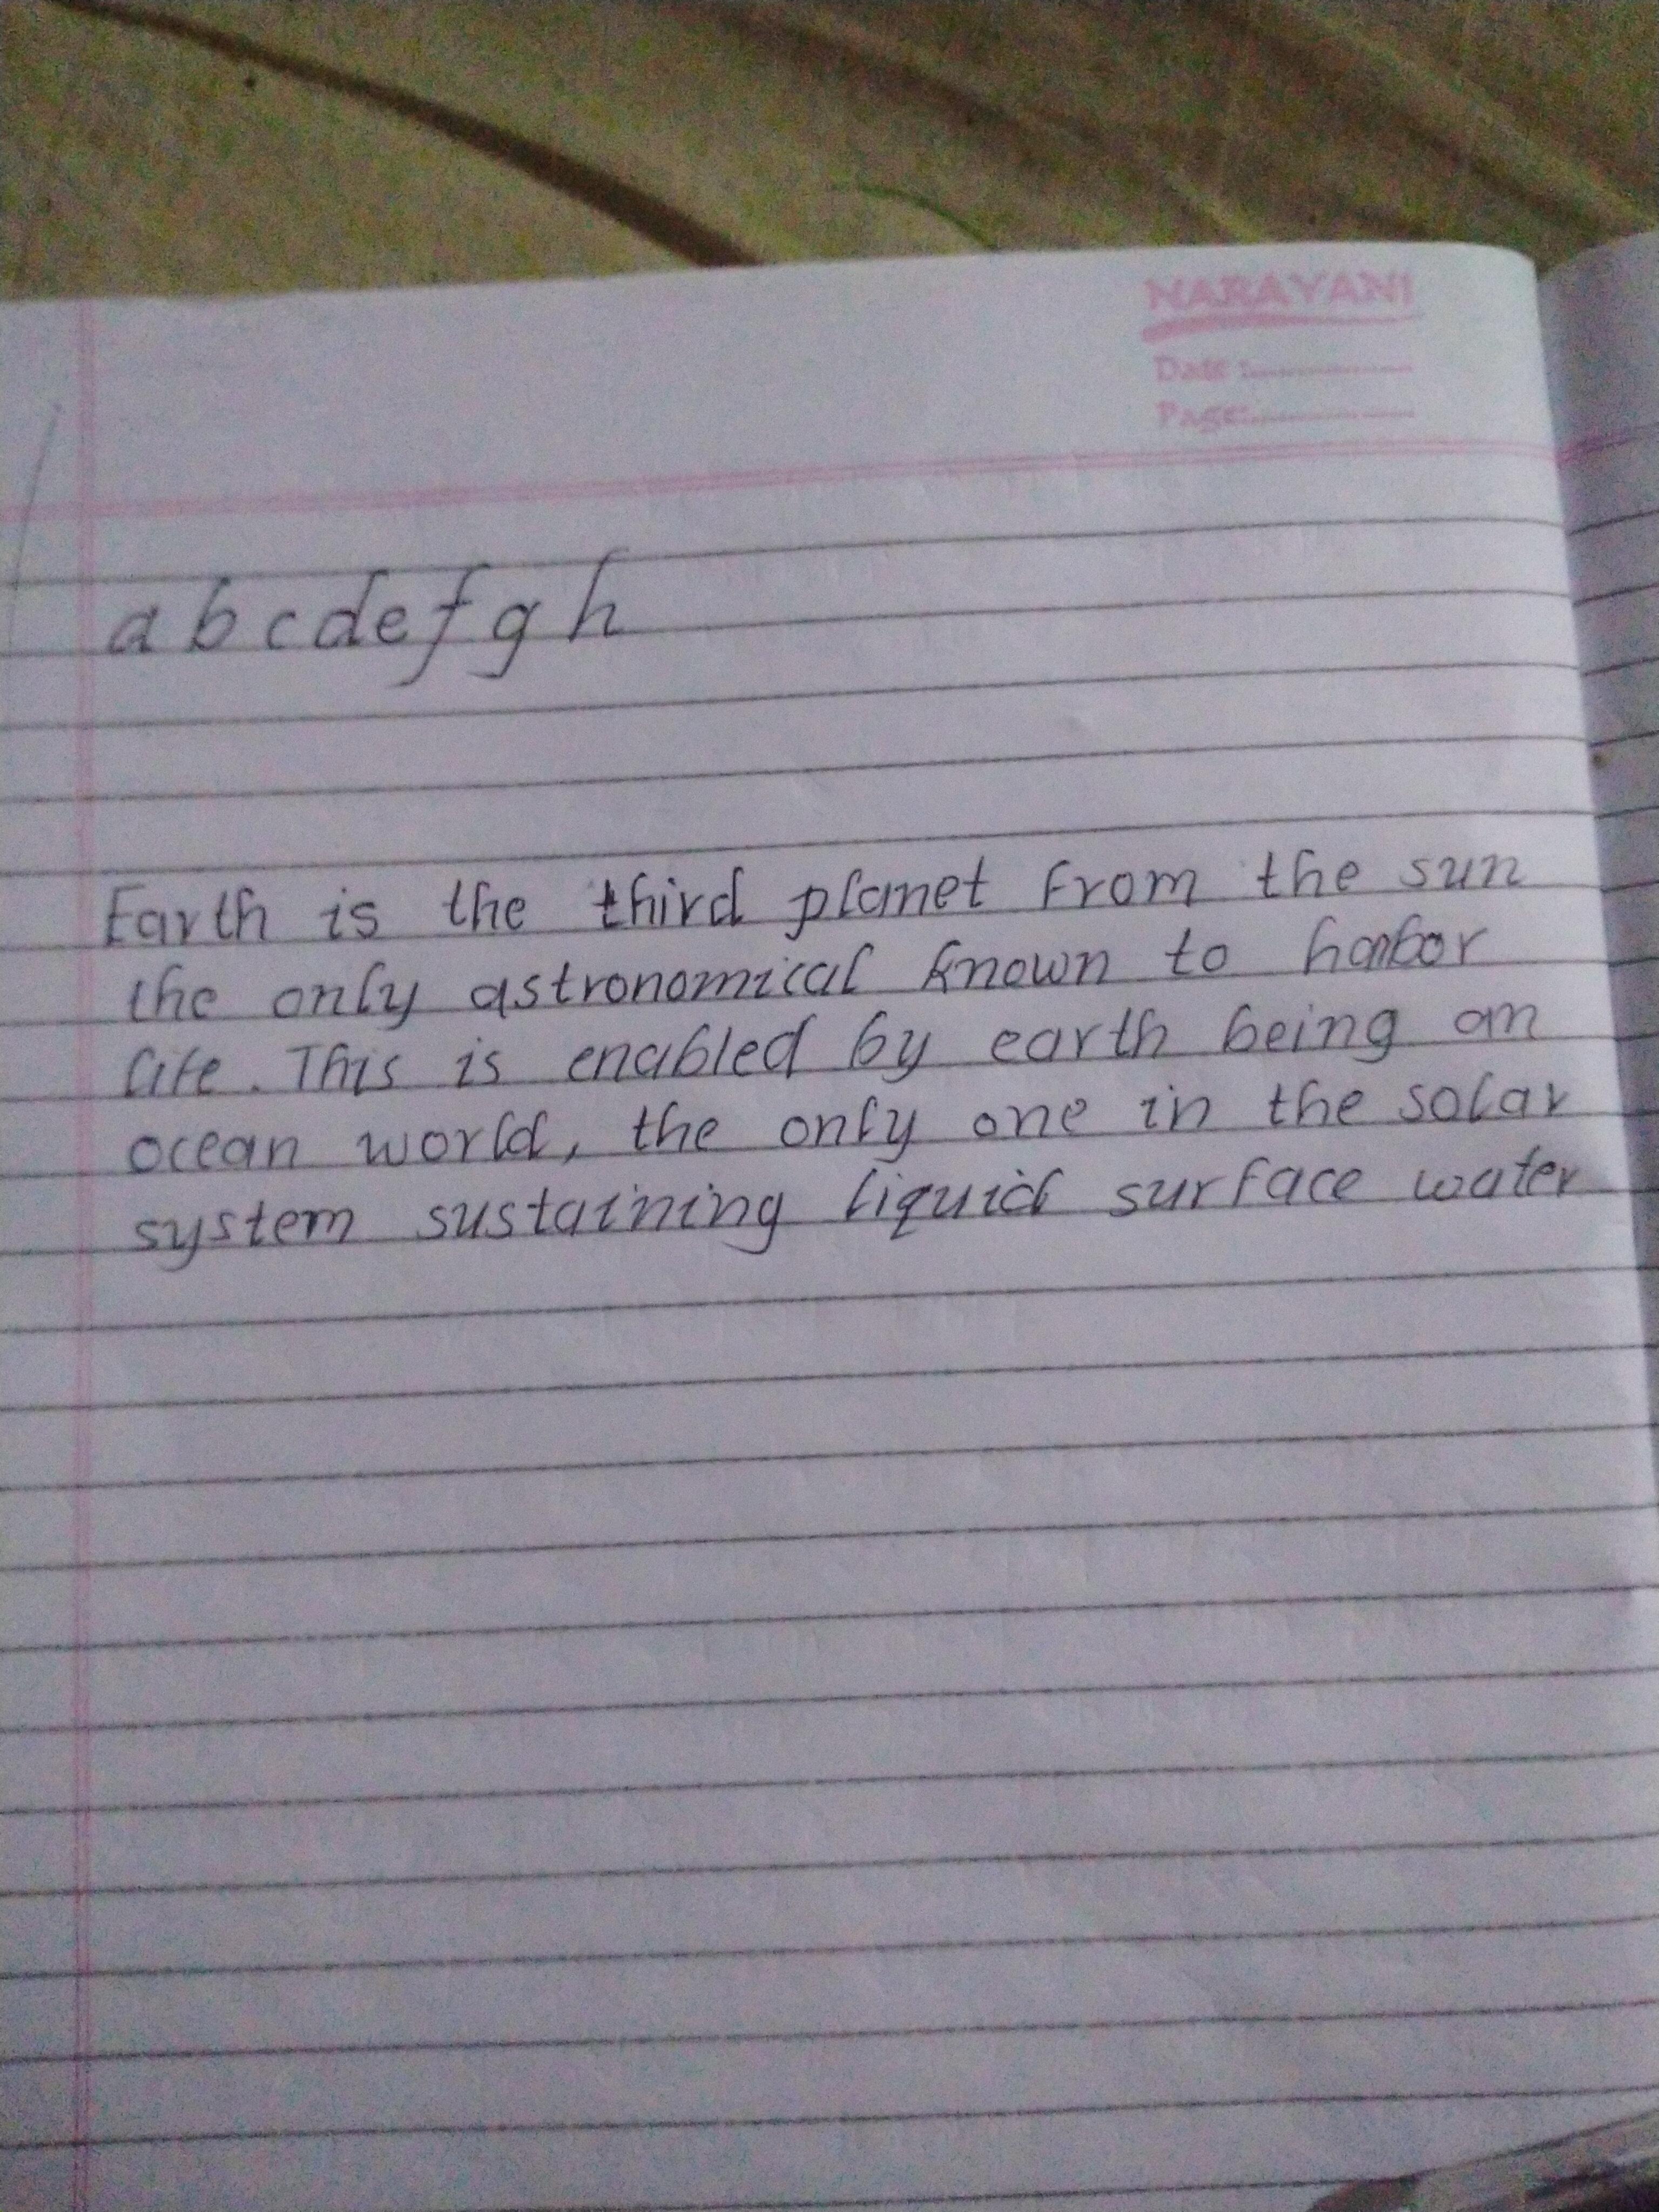 NARAYANI
Date :
Page:
a b c d e f g h
Earth is the third planet from the sun
the only astronomical known to harbor
life. This is enabled by earth being an
ocean world, the only one in the solar
system sustaining liquid surface water